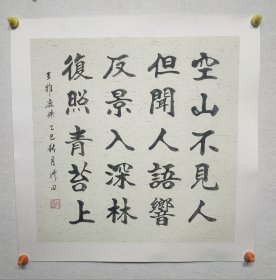 空山不見人
但聞人語響
反景入深林
復照青苔上
王維鹿柴 乙巳